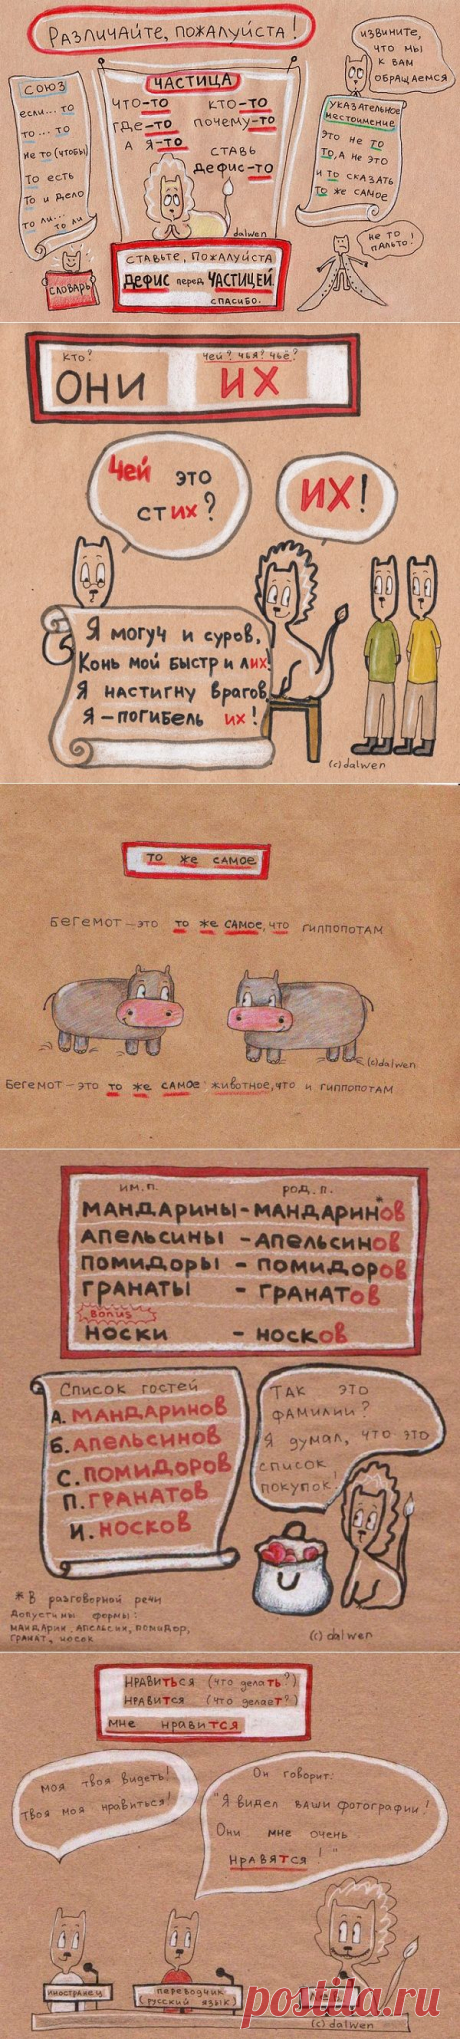 Различайте, пожалуйста!
СОЮЗ
если... то
то ... то
не то (чтобы)
то есть
то и дело
то ли... то ли
СЛОВАРЬ
ЧАСТИЦА
что-то
кто-то
где-то
почему-то
а я-то
ставь
дефис-то
dalwen
ставьте, пожалуйста
дефис перед частицей.
спасибо.
извините,
что мы
к вам
обращаемся
указательное
местоимение
это не то
то, а не это
и то сказать
то же самое
не то
пальто!
кто?
чей? чья? чьё?
ОНИ
ИХ
Чей это
стих?
ИХ!
Я могуч и суров,
Конь мой быстр и лих!
Я настигну врагов,
Я – погибель их!
(c)dalwen
то же самое
Бегемот – это то же самое, что гиппопотам
(c)dalwen
Бегемот – это то же самое животное, что и гиппопотам
им.п.
род.п.
мандарины - мандаринов*
апельсины - апельсинов
помидоры - помидоров
гранаты - гранатов
Bonus
носки - носков
Список гостей
А. Мандаринов
Б. Апельсинов
С. Помидоров
П. Гранатов
И. Носков
Так это
фамилии?
Я думал, что это
список
покупок!
* В разговорной речи
допустимы формы:
мандарин, апельсин, помидор,
гранат, носок
(c) dalwen
нравиться (что делать?)
нравится (что делает?)
мне нравится
моя твоя видеть!
твоя моя нравиться!
Он говорит:
"Я видел ваши фотографии!
Они мне очень
нравятся!"
иностранец
переводчик
(русский язык)
(c) dalwen
postila.ru